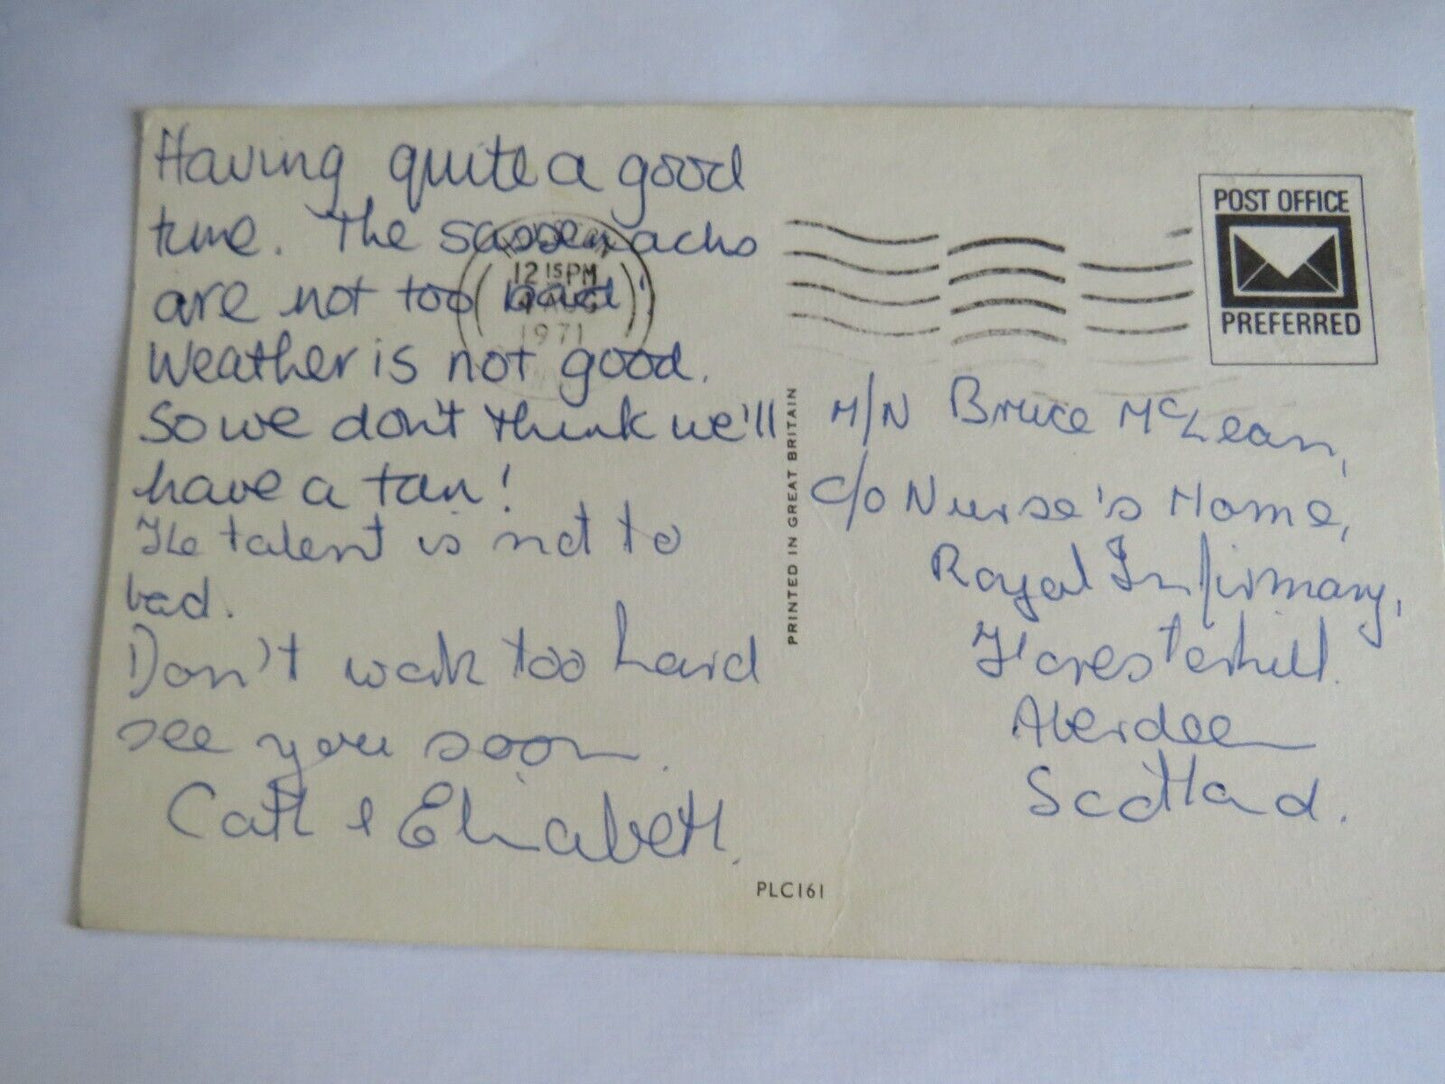 Having quite a good
time. The sassenachs
are not too bad!
Weather is not good.
So we don't think we'll
have a tan!
The talent is not to
bad.
Don't work too hard
see you soon.
Cath & Elizabeth.
12 15 PM
AUG
1971
POST OFFICE
PREFERRED
PRINTED IN GREAT BRITAIN
M/N Bruce McLean,
c/o Nurse's Home,
Royal Infirmary,
Foresterhill.
Aberdeen
Scotland.
PLC161